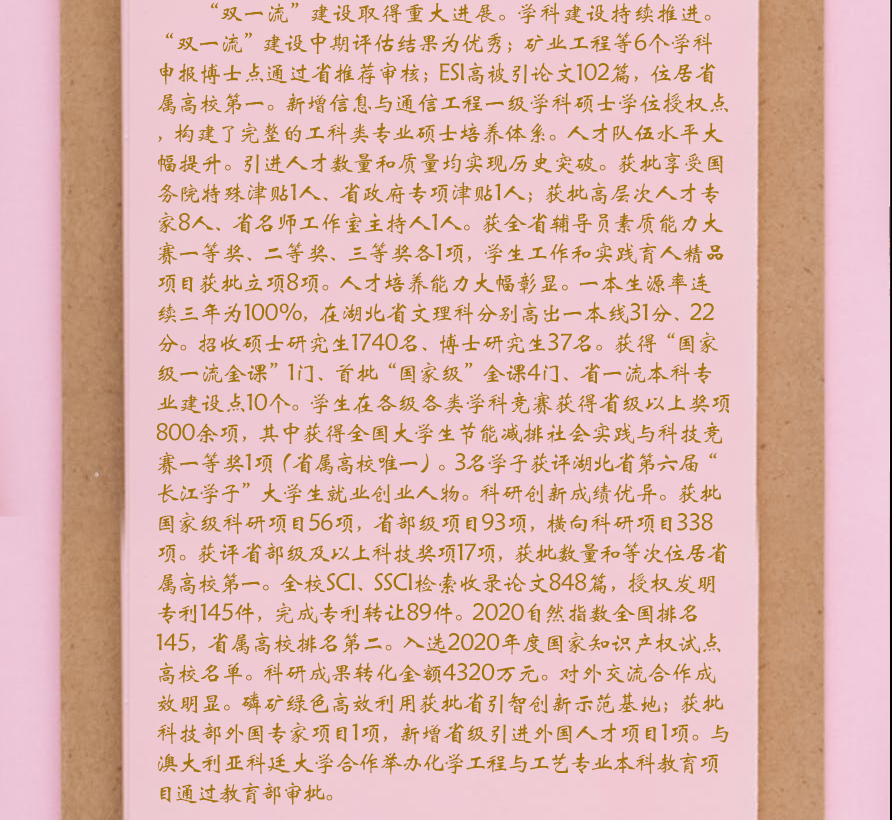 “双一流”建设取得重大进展。学科建设持续推进。
“双一流”建设中期评估结果为优秀；矿业工程等6个学科
申报博士点通过省推荐审核；ESI高被引论文102篇，位居省
属高校第一。新增信息与通信工程一级学科硕士学位授权点
，构建了完整的工科类专业硕士培养体系。人才队伍水平大
幅提升。引进人才数量和质量均实现历史突破。获批享受国
务院特殊津贴1人、省政府专项津贴1人；获批高层次人才专
家8人、省名师工作室主持人1人。获全省辅导员素质能力大
赛一等奖、二等奖、三等奖各1项，学生工作和实践育人精品
项目获批立项8项。人才培养能力大幅彰显。一本生源率连
续三年为100%，在湖北省文理科分别高出一本线31分、22
分。招收硕士研究生1740名、博士研究生37名。获得“国家
级一流金课”1门、首批“国家级”金课4门、省一流本科专
业建设点10个。学生在各级各类学科竞赛获得省级以上奖项
800余项，其中获得全国大学生节能减排社会实践与科技竞
赛一等奖1项（省属高校唯一）。3名学子获评湖北省第六届“
长江学子”大学生就业创业人物。科研创新成绩优异。获批
国家级科研项目56项，省部级项目93项，横向科研项目338
项。获评省部级及以上科技奖项17项，获批数量和等次位居省
属高校第一。全校SCI、SSCI检索收录论文848篇，授权发明
专利145件，完成专利转让89件。2020自然指数全国排名
145，省属高校排名第二。入选2020年度国家知识产权试点
高校名单。科研成果转化金额4320万元。对外交流合作成
效明显。磷矿绿色高效利用获批省引智创新示范基地；获批
科技部外国专家项目1项，新增省级引进外国人才项目1项。与
澳大利亚科廷大学合作举办化学工程与工艺专业本科教育项
目通过教育部审批。